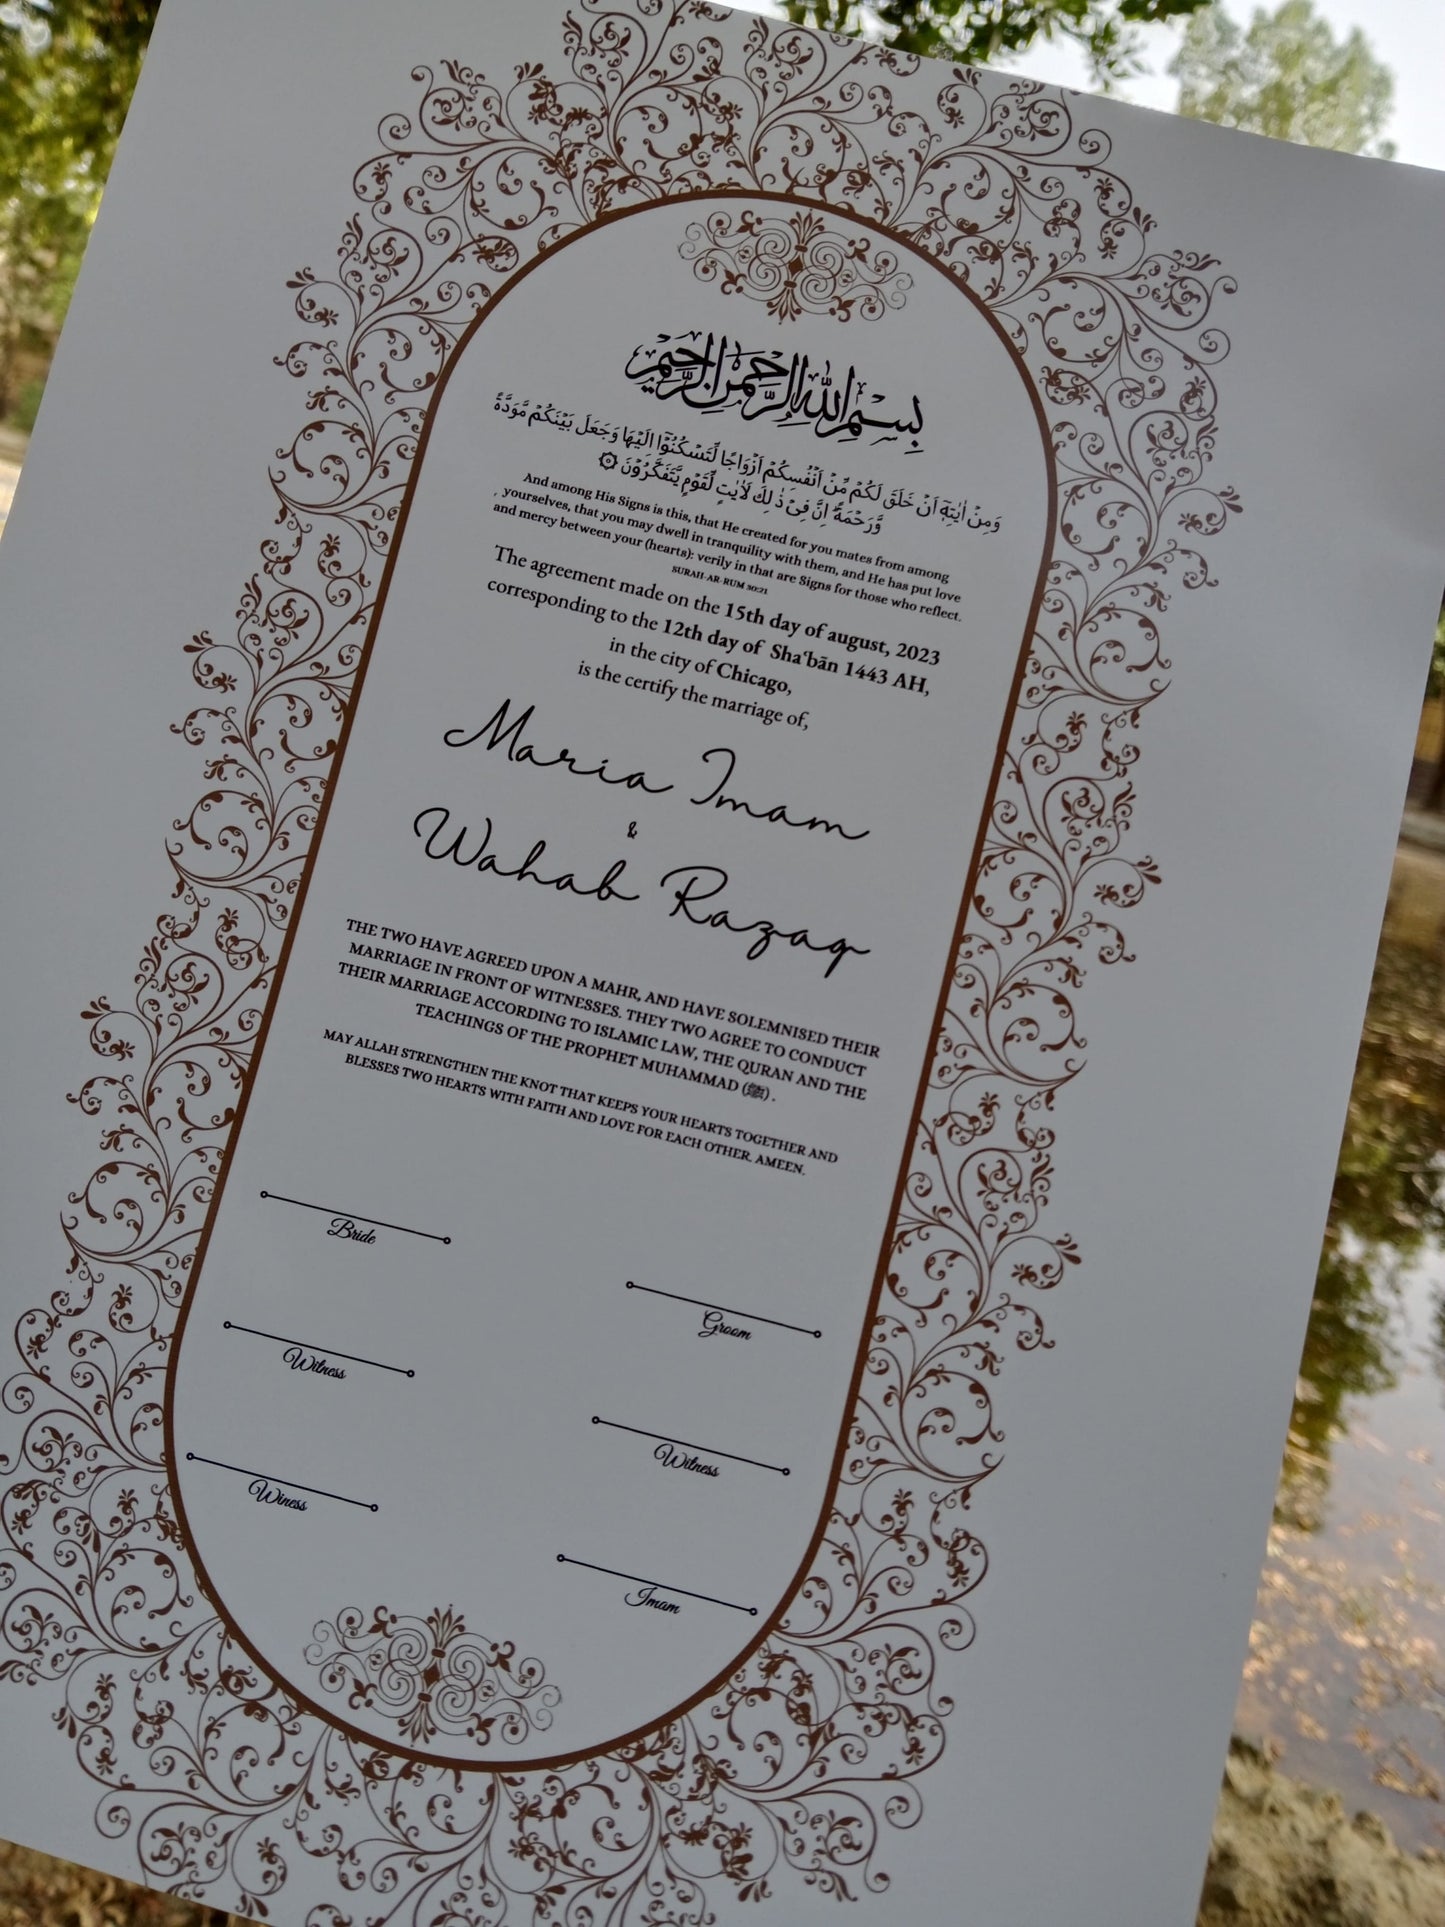 بِسْمِ اللهِ الرَّحْمٰنِ الرَّحِيْمِ
وَمِنْ اٰيٰتِهٖٓ اَنْ خَلَقَ لَكُمْ مِّنْ اَنْفُسِكُمْ اَزْوَاجًا لِّتَسْكُنُوْٓا اِلَيْهَا وَجَعَلَ بَيْنَكُمْ مَّوَدَّةً
وَّرَحْمَةً ؕ اِنَّ فِىْ ذٰ لِكَ لَاٰيٰتٍ لِّقَوْمٍ يَّتَفَكَّرُوْنَ ۞
And among His Signs is this, that He created for you mates from among
, yourselves, that you may dwell in tranquility with them, and He has put love
and mercy between your (hearts): verily in that are Signs for those who reflect.
SURAH-AR-RUM 30:21
The agreement made on the 15th day of august, 2023
corresponding to the 12th day of Sha‘bān 1443 AH,
in the city of Chicago,
is the certify the marriage of,
Maria Imam
&
Wahab Razaq
THE TWO HAVE AGREED UPON A MAHR, AND HAVE SOLEMNISED THEIR
MARRIAGE IN FRONT OF WITNESSES. THEY TWO AGREE TO CONDUCT
THEIR MARRIAGE ACCORDING TO ISLAMIC LAW, THE QURAN AND THE
TEACHINGS OF THE PROPHET MUHAMMAD (ﷺ) .
MAY ALLAH STRENGTHEN THE KNOT THAT KEEPS YOUR HEARTS TOGETHER AND
BLESSES TWO HEARTS WITH FAITH AND LOVE FOR EACH OTHER. AMEEN.
Bride
Groom
Witness
Witness
Winess
Imam